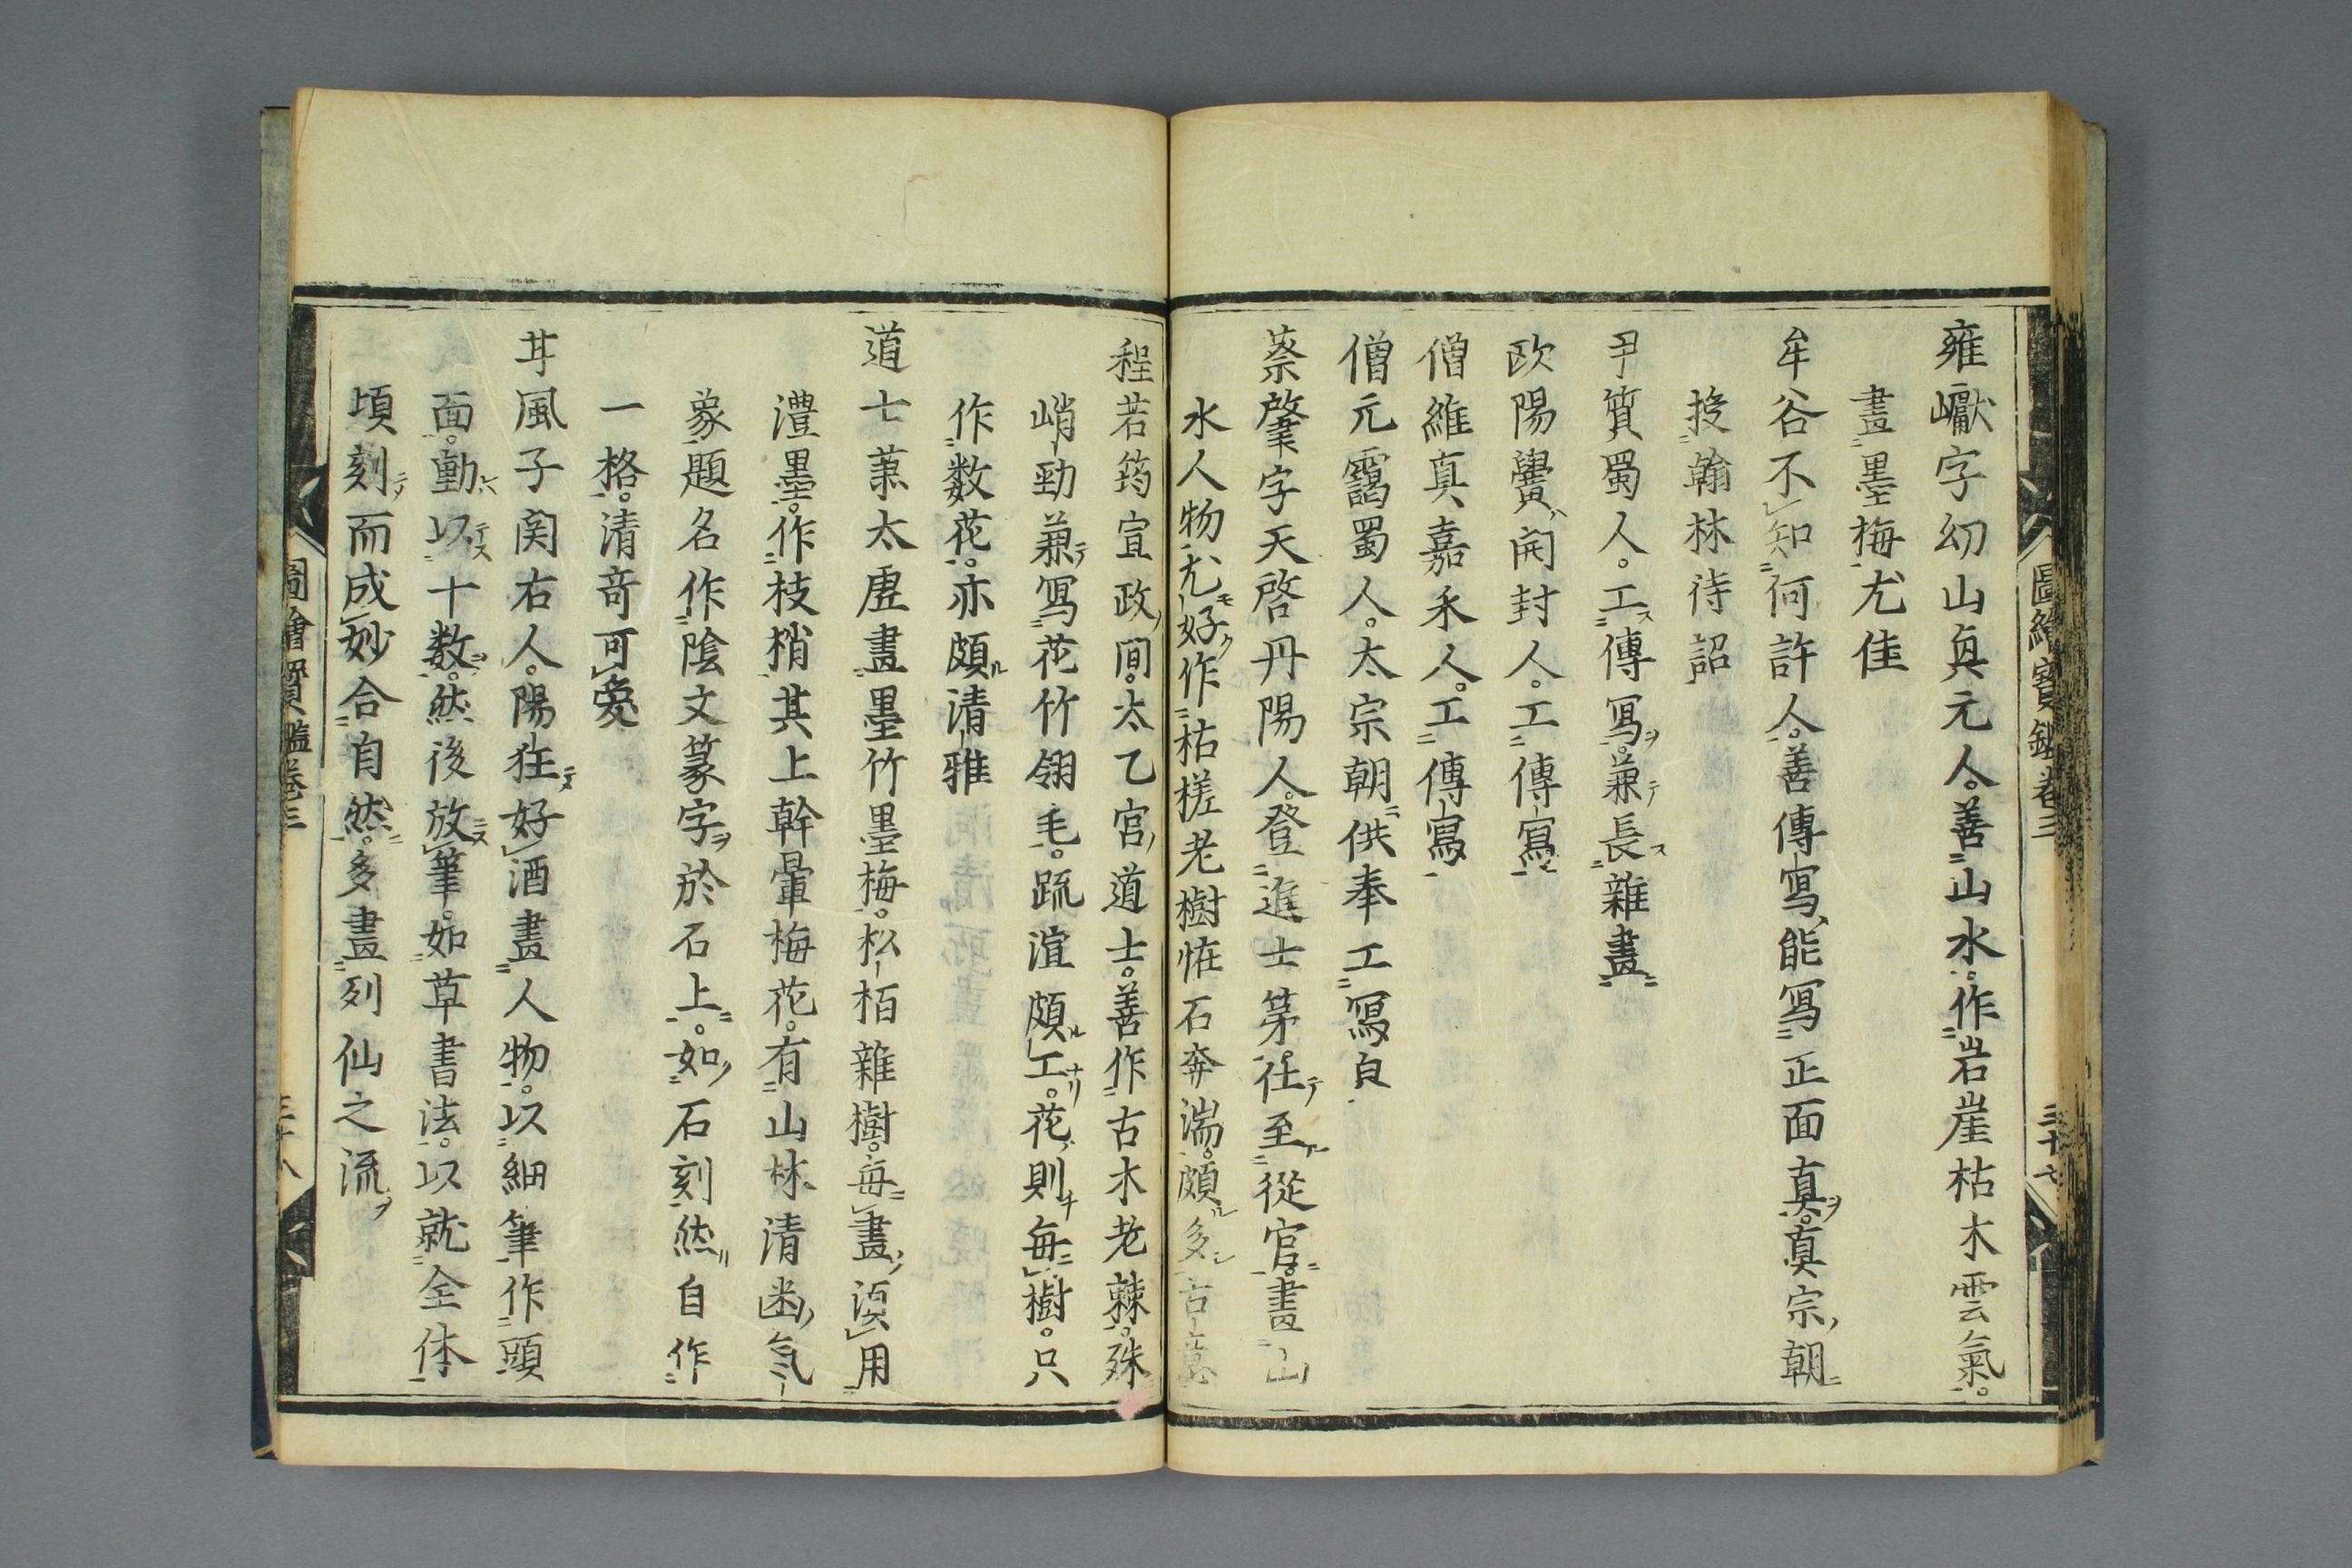 圖繪寶鑑卷三
三十七
雍巘字幻山真元人。善山水。作岩崖枯木雲氣。
畫墨梅尤佳
牟谷不知何許人。善傳寫、能寫正面真。真宗朝
授翰林待詔
尹質蜀人。工傳寫。兼長雜畫
欧陽黌開封人。工傳寫
僧維真嘉禾人。工傳寫
僧元靄蜀人。太宗朝供奉工寫貞
蔡肇字天啓丹陽人。登進士第。仕至從官。畫山
水人物尤好作枯槎老樹恠石奔湍。頗多古意
程若筠宣政間。太乙宮道士。善作古木老棘。殊
峭勁兼寫花竹翎毛。䟽渲頗工。花則每樹。只
作数花。亦頗清雅
道士蕭太虛畫墨竹墨梅。松栢雜樹。每畫須用
澧墨。作枝梢其上幹暈梅花。有山林清幽氣
象題名作陰文篆字於石上。如石刻然自作
一格。清竒可愛
甘風子関右人。陽狂好酒畫人物。以細筆作頭
面。動以十数。然後放筆。如草書法。以就全体
頃刻而成妙合自然。多畫列仙之流
圖繪寶鑑卷三
三十八